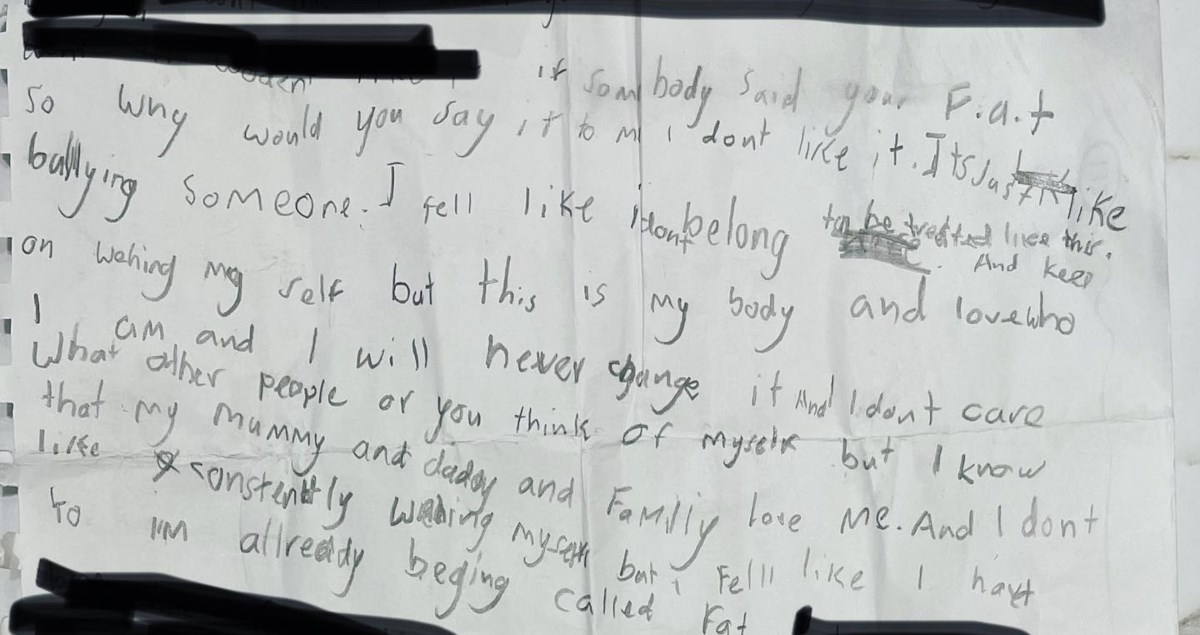 if som body said your F.a.t
so why would you say it to m i dont like it. Its Just like
bullying someone. I fell like i dont belong to be treated like this. And keep
on wehing my self but this is my body and love who
I am and I will never change it And I dont care
What other people or you think of myself but I know
that my mummy and daddy and Familly love me. And I dont
like constently wehing myself but i Felll like I haft
to i'm allready beging called Fat